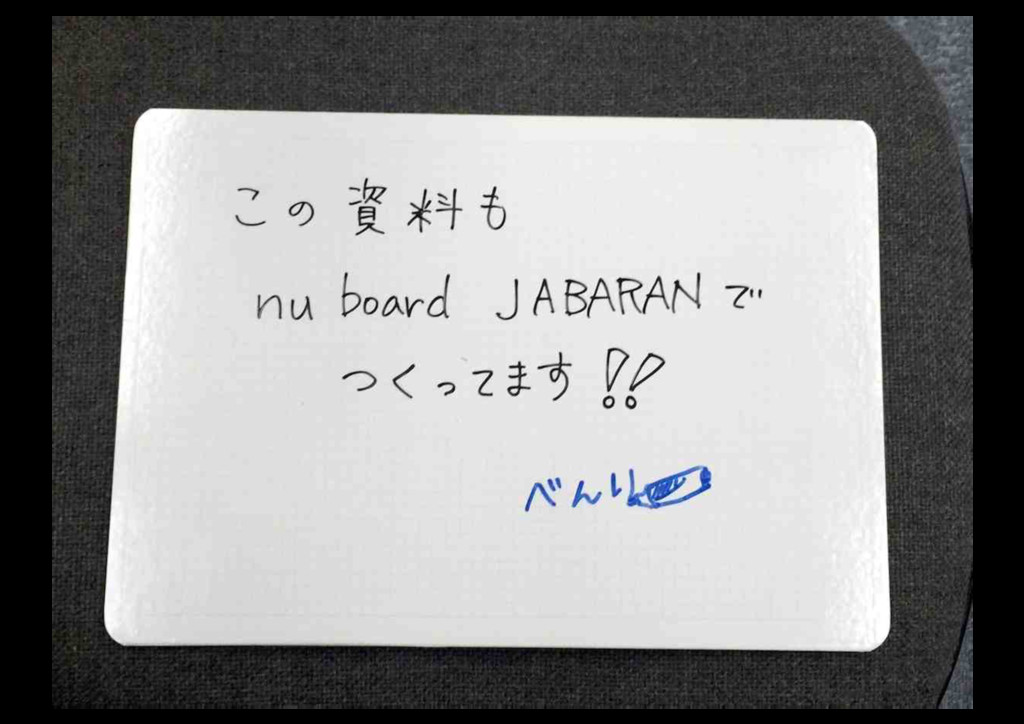 この資料も
nu board JABARANで
つくってます!!
べんり